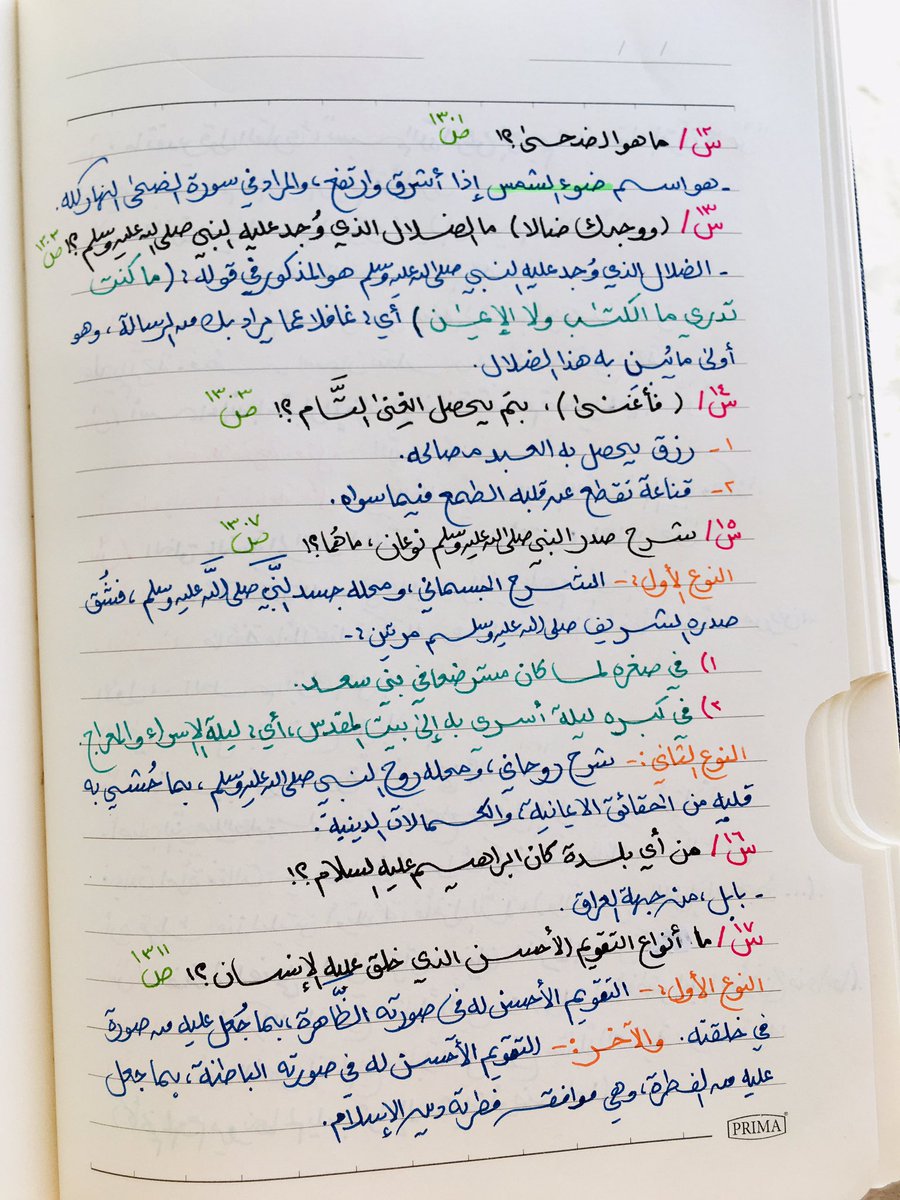 س١٢/ ما هو الضحىٰ؟! ص١٣٠١
- هو اسم ضوء الشمس إذا أشرق وارتفع، والمراد في سورة الضحىٰ النهار كله.
س١٣/ (ووجدك ضالا) ما الضلال الذي وُجد عليه النبي صلى الله عليه وسلم؟! ص١٣٠٢
- الضلال الذي وُجد عليه النبي صلى الله عليه وسلم هو المذكور في قوله: (ما كنت
تدري ما الكتٰب ولا الإيمٰن) أي: غافلا عما يراد بك من الرسالة، وهو
أولىٰ ما يُبين به هذا الضلال.
س١٤/ (فأغنىٰ)، بمَ يحصل الغِنىٰ التَّام؟! ص١٣٠٣
١- رزق يحصل به العبد مصالحه.
٢- قناعة تقطع عن قلبه الطمع فيما سواه.
س١٥/ شرح صدر النبي صلى الله عليه وسلم نوعان، ما هُما؟! ص١٣٠٧
النوع الأول:- الشرح الجسماني، ومحله جسد النَّبي صلى الله عليه وسلم، فشُق
صدره الشريف صلى الله عليه وسلم مرتين:-
١) في صغره لما كان مسترضعا في بني سعد.
٢) في كبره ليلة أسري به إلىٰ بيت المقدس، أي: ليلة الإسراء والمعراج.
النوع الثاني:- شرح روحاني، ومحله روح النبي صلى الله عليه وسلم، بما حُشي به
قلبه من الحقائق الايمانية، والكمالات الدينية.
س١٦/ من أي بلدة كان ابراهيم عليه السلام؟!
- بابل، من جهة العراق.
س١٧/ ما أنواع التقويم الأحسن الذي خلق عليه الإنسان؟! ص١٣١١
النوع الأول:- التقويم الأحسن له في صورته الظَّاهرة، بما جُعل عليه من صورة
في خلقته. والآخر:- التقويم الأحسن له في صورته الباطنة، بما جعل
عليه من الفطرة، وهي موافقة فطرته دين الإسلام.
PRIMA